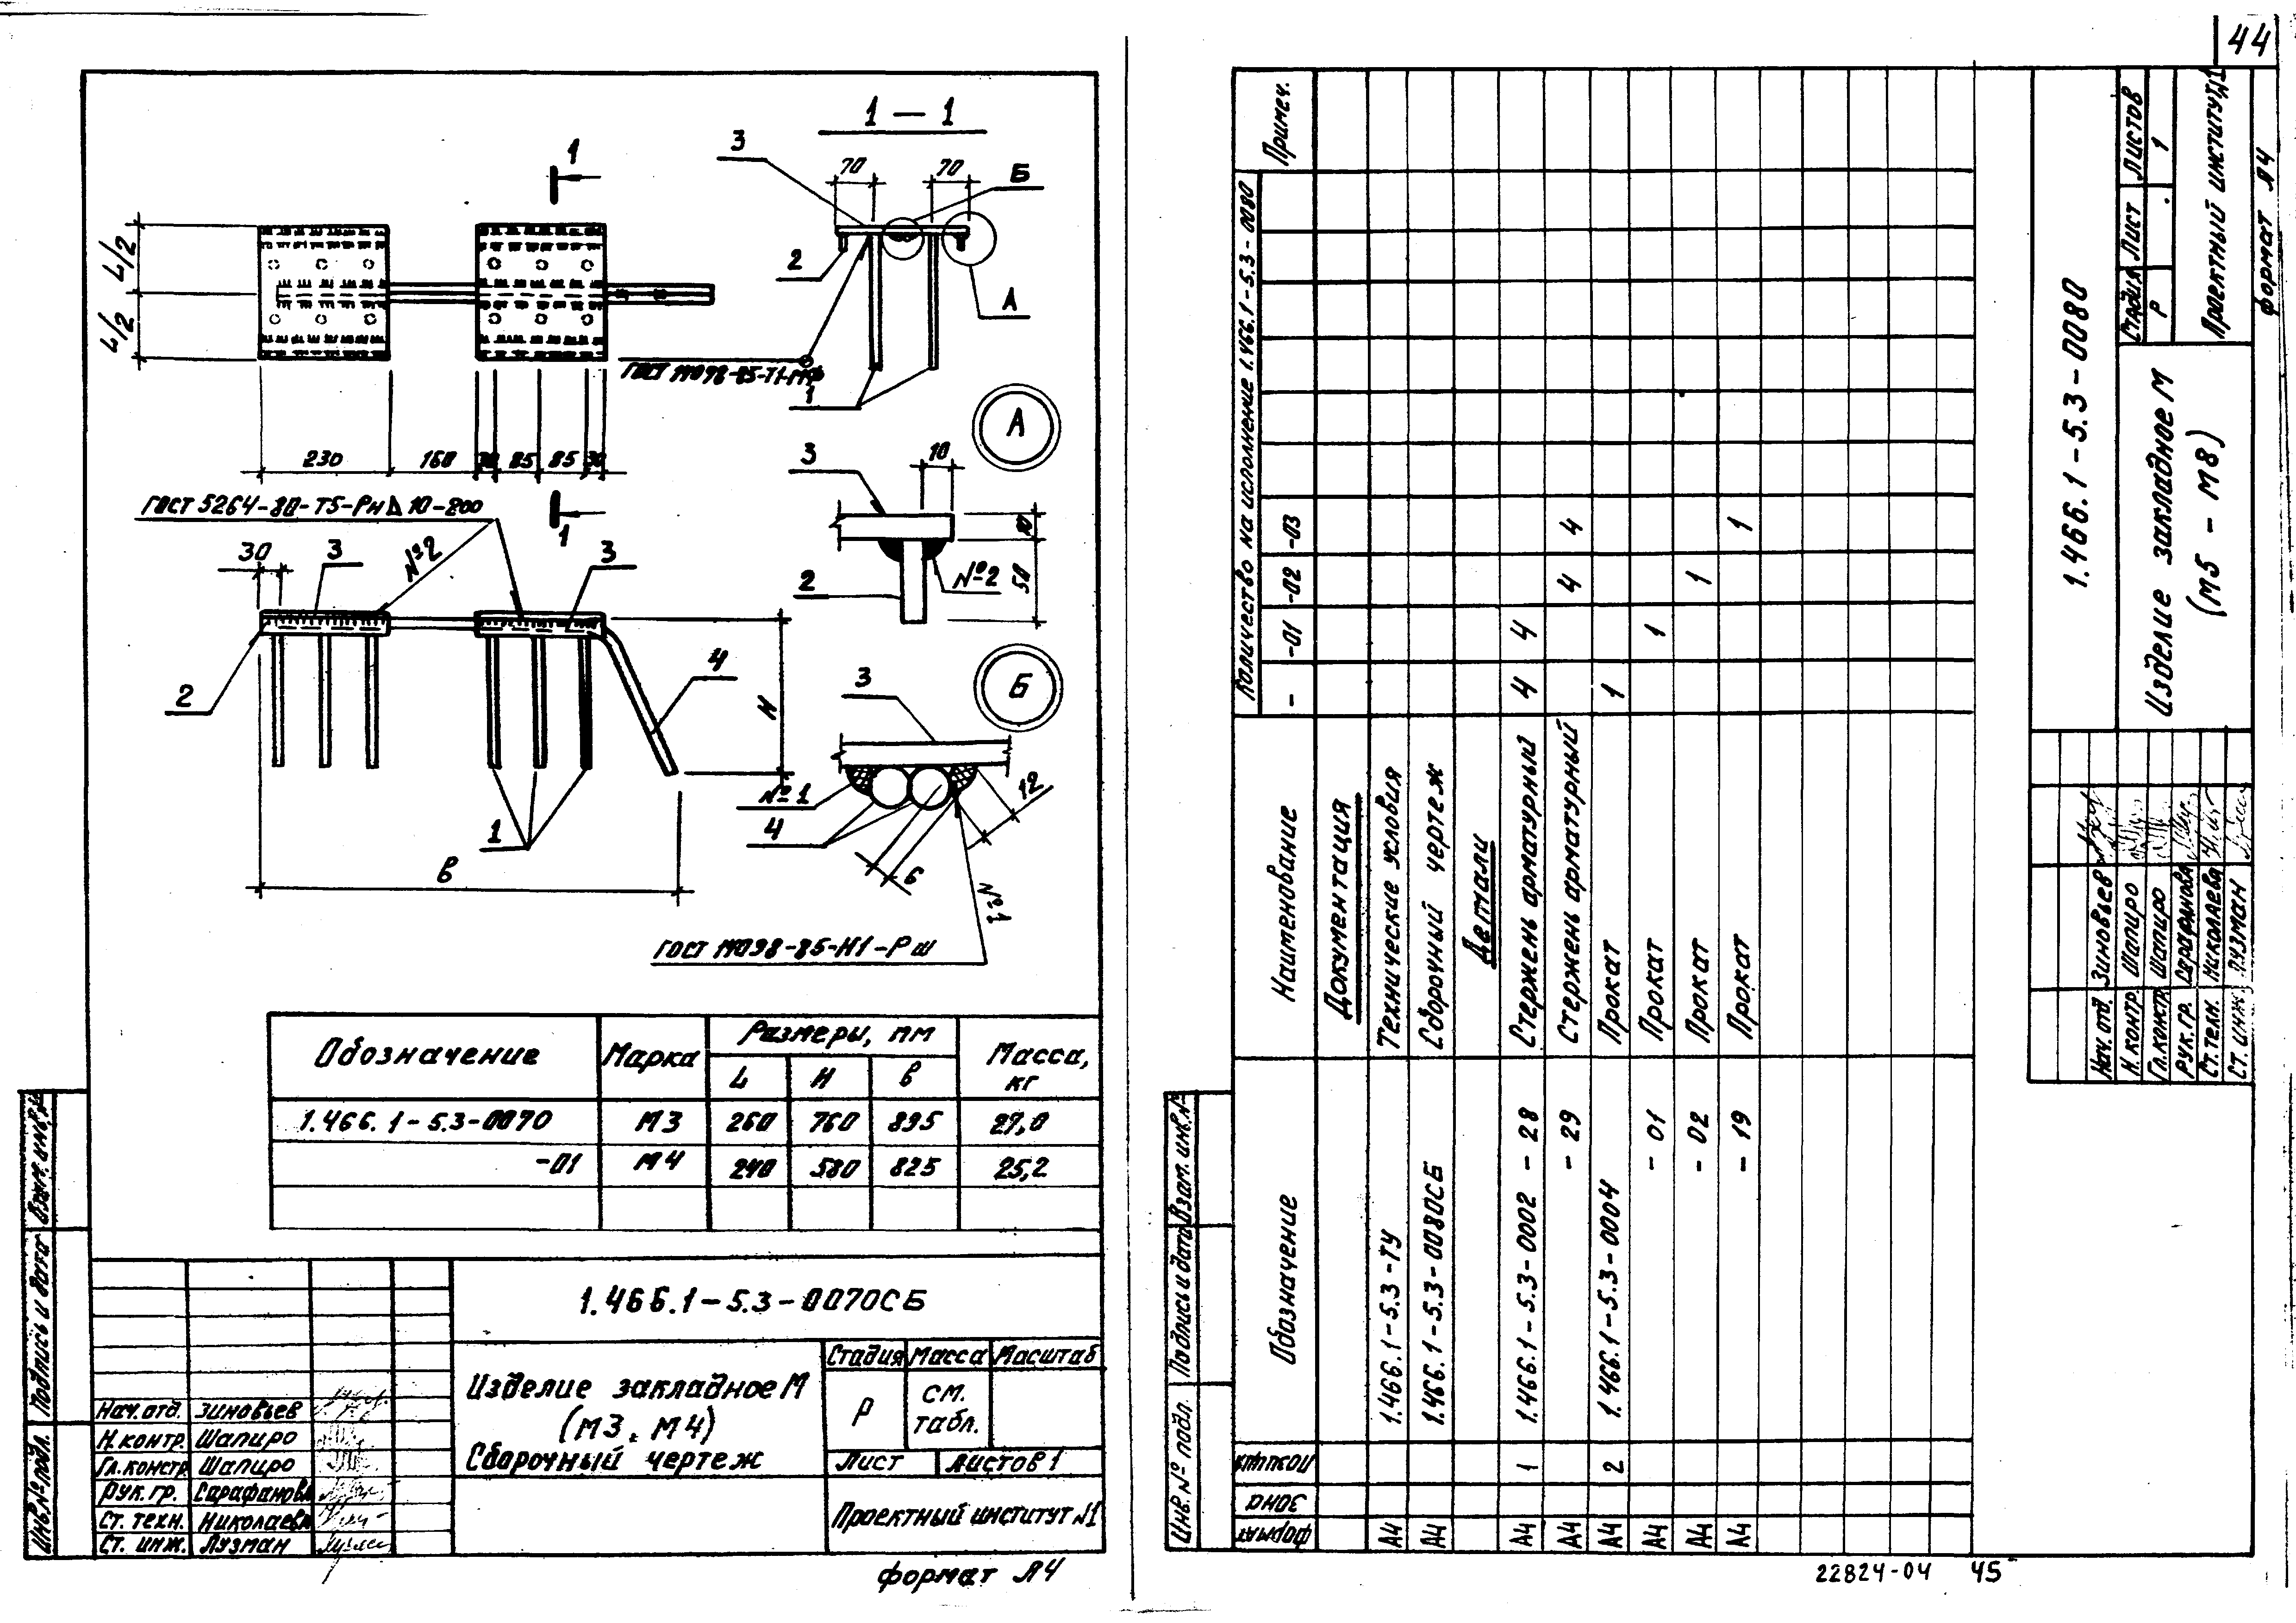 44
1 — 1
1
3
70
70
Б
2
А
L/2
L/2
1
230
160
30
85
85
30
А
3
10
10
50
2
№2
1
ГОСТ 5264-80-Т5-Рн ⊿ 10-200
30
3
№2
3
2
4
H
1
В
Б
3
№1
4
12
6
№1
ГОСТ 14098-85-Н1-Рш
Обозначение
Марка
Размеры, мм
Масса, кг
L
H
В
1.466.1-5.3-0070
М3
260
760
895
27,0
-01
М4
240
580
825
25,2
1.466.1-5.3-0070СБ
Изделие закладное М
(М3, М4)
Сборочный чертеж
Стадия
Масса
Масштаб
Р
см. табл.
Лист
Листов 1
Проектный институт №1
Нач. отд. Зиновьев
Н. контр. Шапиро
Гл. констр. Шапиро
Рук. гр. Сарафанова
Ст. техн. Николаева
Ст. инж. Лузман
Инв. № подл.
Подпись и дата
Взам. инв. №
формат А4
Формат
Зона
Позиция
Обозначение
Наименование
Количество на исполнение 1.466.1-5.3-0080
- -01 -02 -03
Примеч.
Документация
А4 1.466.1-5.3-ТУ Технические условия
А4 1.466.1-5.3-0080СБ Сборочный чертеж
Детали
А4 1 1.466.1-5.3-0002-28 Стержень арматурный 4 4
А4 -29 Стержень арматурный 4 4
А4 2 1.466.1-5.3-0004 Прокат 1
А4 -01 Прокат 1
А4 -02 Прокат 1
А4 -19 Прокат 1
1.466.1-5.3-0080
Изделие закладное М
(М5 - М8)
Стадия
Лист
Листов
Р
1
Проектный институт №1
Нач. отд. Зиновьев
Н. контр. Шапиро
Гл. констр. Шапиро
Рук. гр. Сарафанова
Ст. техн. Николаева
Ст. инж. Лузман
Инв. № подл.
Подпись и дата
Взам. инв. №
формат А4
22824-04 45